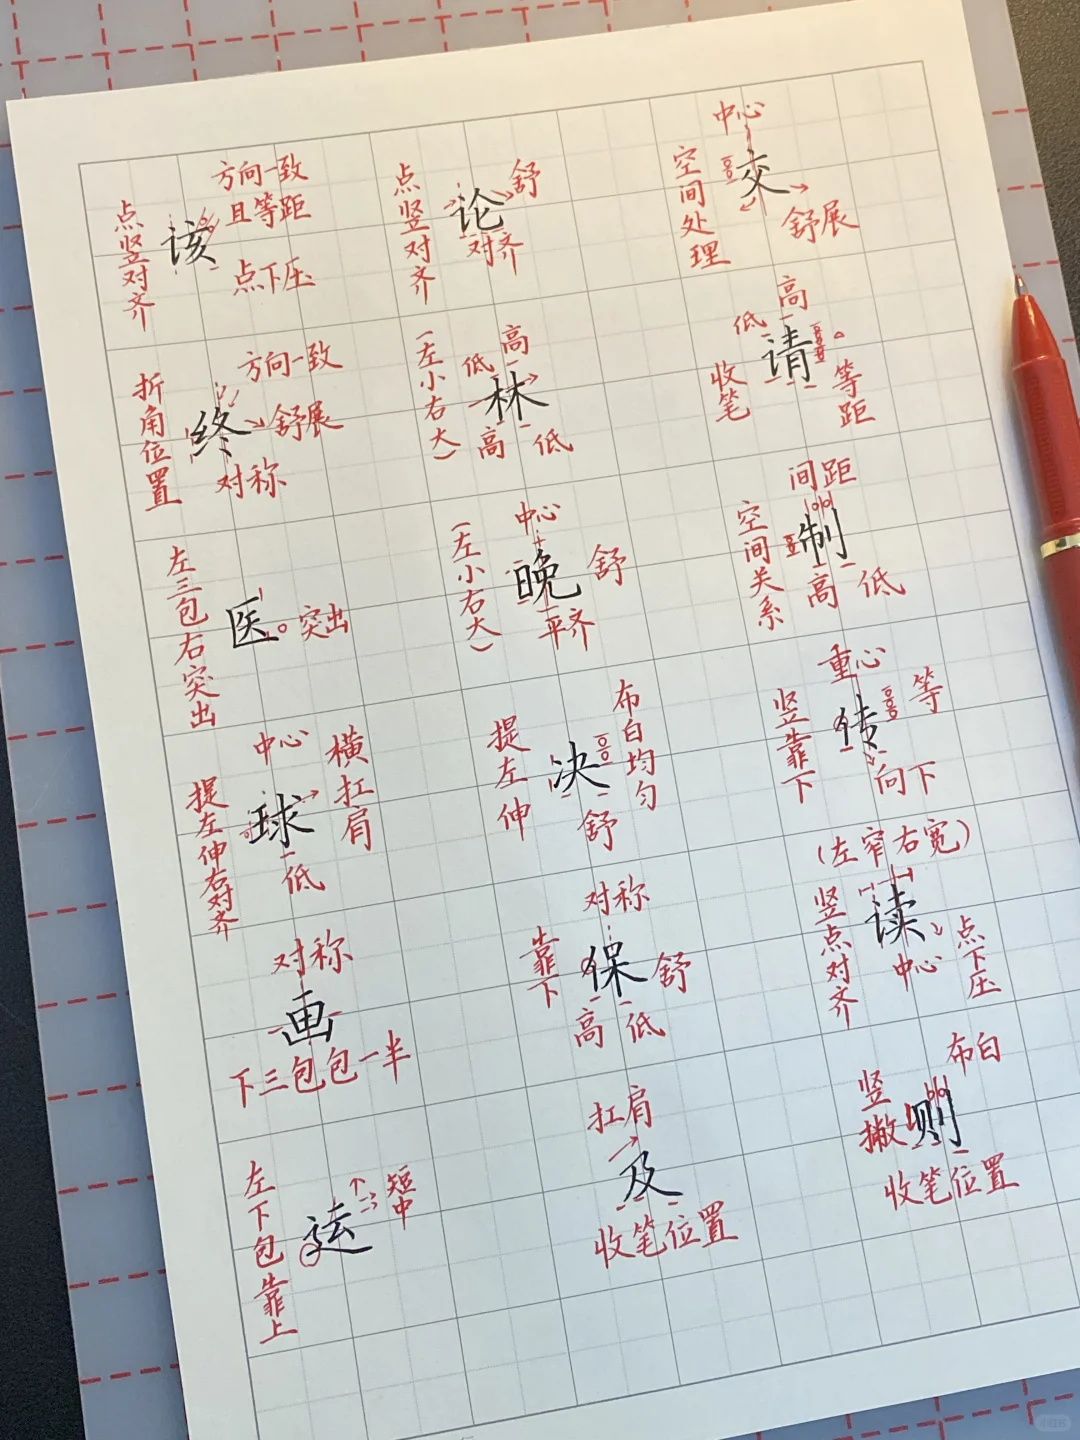 点竖对齐
该
方向一致
且等距
点下压
点竖对齐
论
舒
对齐
中心
空间处理
交
舒展
折角位置
终
方向一致
舒展
对称
(左小右大)
低
高
林
高
低
高
低
请
收笔
等距
左三包右突出
医
突出
(左小右大)
中心
晚
舒
平齐
间距
空间关系
制
高
低
中心
提左伸右对齐
球
横扛肩
低
提左伸
决
布白均匀
舒
重心
竖靠下
传
等
向下
对称
画
下三包包一半
对称
靠下
保
舒
高
低
(左窄右宽)
竖点对齐
读
中心
点下压
左下包靠上
运
短中
扛肩
及
收笔位置
布白
竖撇
则
收笔位置
小红书